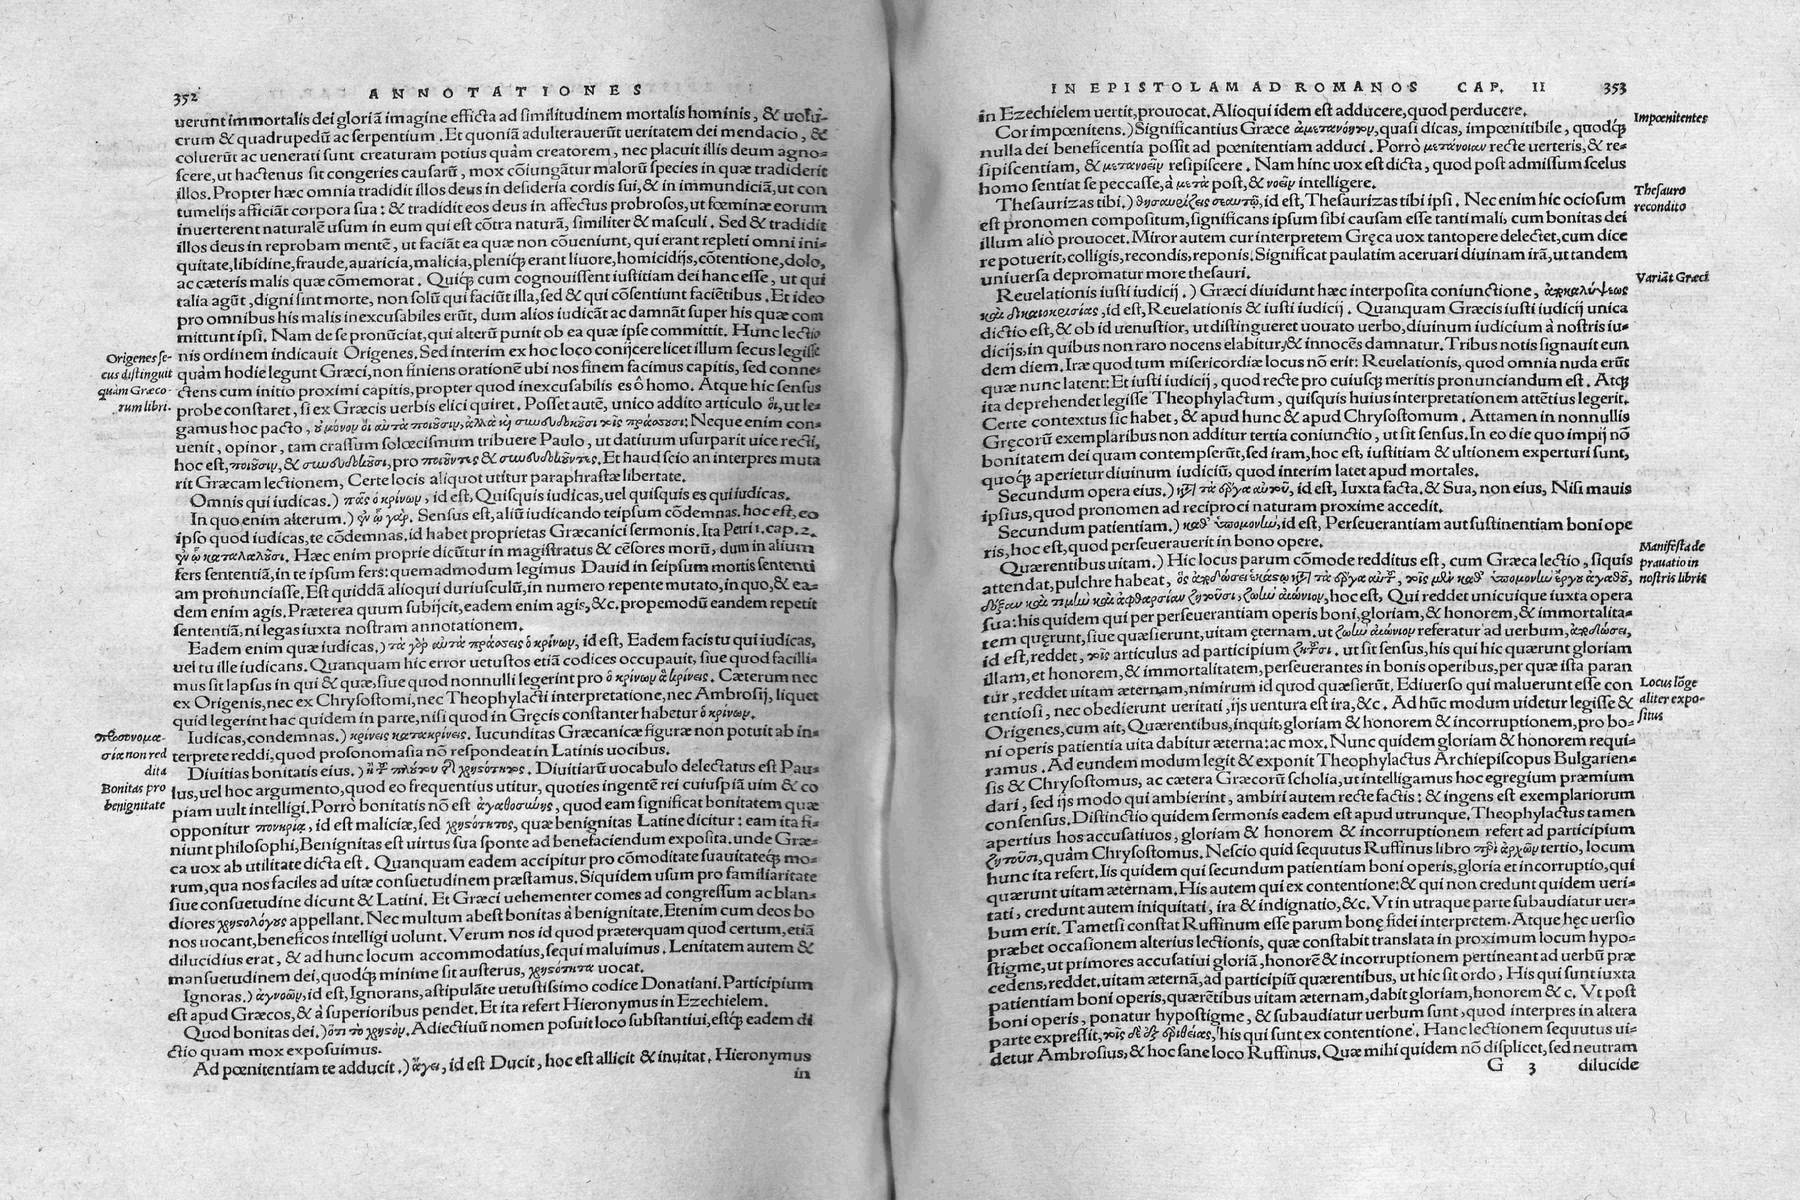 352 ANNOTATIONES
uerunt immortalis dei gloriã imagine efficta ad similitudinem mortalis hominis, & uolu-
crum & quadrupedũ ac serpentium. Et quoniã adulterauerũt ueritatem dei mendacio, &
coluerũt ac uenerati sunt creaturam potius quàm creatorem, nec placuit illis deum agno-
scere, ut hactenus sit congeries causarũ, mox cõiungãtur malorũ species in quæ tradiderit
illos. Propter hæc omnia tradidit illos deus in desideria cordis sui, & in immundiciã, ut con
tumelijs afficiãt corpora sua: & tradidit eos deus in affectus probrosos, ut fœminæ eorum
inuerterent naturalẽ usum in eum qui est cõtra naturã, similiter & masculi. Sed & tradidit
illos deus in reprobam mentẽ, ut faciãt ea quæ non cõueniunt, qui erant repleti omni ini-
quitate, libidine, fraude, auaricia, malicia, pleniq́; erant liuore, homicidijs, cõtentione, dolo,
ac cæteris malis quæ cõmemorat. Quiq́; cum cognouissent iustitiam dei hanc esse, ut qui
talia agũt, digni sint morte, non solũ qui faciũt illa, sed & qui cõsentiunt faciẽtibus. Et ideo
pro omnibus his malis inexcusabiles erũt, dum alios iudicãt ac damnãt super his quæ com
mittunt ipsi. Nam de se pronũciat, qui alterũ punit ob ea quæ ipse committit. Hunc lectio
nis ordinem indicauit Origenes. Sed interim ex hoc loco conijcere licet illum secus legisse
Origenes se-
cus distinguit
quàm Græco-
rum libri.
quàm hodie legunt Græci, non finiens orationẽ ubi nos finem facimus capitis, sed conne-
ctens cum initio proximi capitis, propter quod inexcusabilis es ô homo. Atque hic sensus
probe constaret, si ex Græcis uerbis elici quiret. Posset autẽ, unico addito articulo οἱ, ut le-
gamus hoc pacto, οὐ μόνον οἱ αὐτὰ ποιοῦσιν, ἀλλὰ καὶ συνευδοκοῦσι τοῖς πράσσουσι: Neque enim con-
uenit, opinor, tam crassum solœcismum tribuere Paulo, ut datiuum usurparit uice recti,
hoc est, ποιοῦσιν, & συνευδοκοῦσι, pro ποιοῦντες & συνευδοκοῦντες. Et haud scio an interpres muta
rit Græcam lectionem, Certe locis aliquot utitur paraphrastæ libertate.
Omnis qui iudicas.) πᾶς ὁ κρίνων, id est, Quisquis iudicas, uel quisquis es qui iudicas.
In quo enim alterum.) ἐν ᾧ γὰρ. Sensus est, aliũ iudicando teipsum cõdemnas. hoc est, eo
ipso quod iudicas, te cõdemnas. id habet proprietas Græcanici sermonis. Ita Petri 1. cap. 2.
ἐν ᾧ καταλαλοῦσι. Hæc enim proprie dicũtur in magistratus & cẽsores morũ, dum in alium
fers sententiã, in te ipsum fers: quemadmodum legimus Dauid in seipsum mortis sententi
am pronunciasse. Est quiddã alioqui duriusculũ, in numero repente mutato, in quo, & ea-
dem enim agis. Præterea quum subijcit, eadem enim agis, &c. propemodũ eandem repetit
sententiã, ni legas iuxta nostram annotationem.
Eadem enim quæ iudicas.) τὰ γὰρ αὐτὰ πράσσεις ὁ κρίνων, id est, Eadem facis tu qui iudicas,
uel tu ille iudicans. Quanquam hic error uetustos etiã codices occupauit, siue quod facilli-
mus sit lapsus in qui & quæ, siue quod nonnulli legerint pro ὁ κρίνων ἃ κρίνεις. Cæterum nec
ex Origenis, nec ex Chrysostomi, nec Theophylacti interpretatione, nec Ambrosij, liquet
quid legerint hac quidem in parte, nisi quod in Gręcis constanter habetur ὁ κρίνων.
προσονομα-
σία non red
dita
Iudicas, condemnas.) κρίνεις κατακρίνεις. Iucunditas Græcanicæ figuræ non potuit ab in-
terprete reddi, quod prosonomasia nõ respondeat in Latinis uocibus.
Diuitias bonitatis eius.) ἢ τοῦ πλούτου τῆς χρηστότητος. Diuitiarũ uocabulo delectatus est Pau-
Bonitas pro
benignitate
lus, uel hoc argumento, quod eo frequentius utitur, quoties ingentẽ rei cuiuspiã uim & co
piam uult intelligi. Porrò bonitatis nõ est ἀγαθοσύνης, quod eam significat bonitatem quæ
opponitur πονηρίᾳ, id est maliciæ, sed χρηστότητος, quæ benignitas Latine dicitur: eam ita fi-
niunt philosophi, Benignitas est uirtus sua sponte ad benefaciendum exposita. unde Græ-
ca uox ab utilitate dicta est. Quanquam eadem accipitur pro cõmoditate suauitateq́; mo-
rum, qua nos faciles ad uitæ consuetudinem præstamus. Siquidem usum pro familiaritate
siue consuetudine dicunt & Latini. Et Græci uehementer comes ad congressum ac blan-
diores χρηστολόγους appellant. Nec multum abest bonitas à benignitate. Etenim cum deos bo
nos uocant, beneficos intelligi uolunt. Verum nos id quod præterquam quod certum, etiã
dilucidius erat, & ad hunc locum accommodatius, sequi maluimus. Lenitatem autem &
mansuetudinem dei, quodq́; minime sit austerus, χρηστότητα uocat.
Ignoras.) ἀγνοῶν, id est, Ignorans, astipulãte uetustissimo codice Donatiani. Participium
est apud Græcos, & à superioribus pendet. Et ita refert Hieronymus in Ezechielem.
Quod bonitas dei.) ὅτι τὸ χρηστὸν. Adiectiuũ nomen posuit loco substantiui, estq́; eadem di
ctio quam mox exposuimus.
Ad pœnitentiam te adducit.) ἄγει, id est Ducit, hoc est allicit & inuitat. Hieronymus
in
IN EPISTOLAM AD ROMANOS CAP. II 353
in Ezechielem uertit, prouocat. Alioqui idem est adducere, quod perducere.
Impœnitentes
Cor impœnitens.) Significantius Græce ἀμετανόητον, quasi dicas, impœnitibile, quodq́;
nulla dei beneficentia possit ad pœnitentiam adduci. Porrò μετάνοιαν recte uerteris, & re-
sipiscentiam, & μετανοεῖν resipiscere. Nam hinc uox est dicta, quod post admissum scelus
homo sentiat se peccasse, à μετὰ post, & νοεῖν intelligere.
Thesauro
recondito
Thesaurizas tibi.) θησαυρίζεις σεαυτῷ, id est, Thesaurizas tibi ipsi. Nec enim hic ociosum
est pronomen compositum, significans ipsum sibi causam esse tanti mali, cum bonitas dei
illum aliò prouocet. Miror autem cur interpretem Gręca uox tantopere delectet, cum dice
re potuerit, colligis, recondis, reponis. Significat paulatim aceruari diuinam irã, ut tandem
uniuersa depromatur more thesauri.
Variãt Græci
Reuelationis iusti iudicij.) Græci diuidunt hæc interposita coniunctione, ἀποκαλύψεως
καὶ δικαιοκρισίας, id est, Reuelationis & iusti iudicij. Quanquam Græcis iusti iudicij unica
dictio est, & ob id uenustior, ut distingueret uouato uerbo, diuinum iudicium à nostris iu-
dicijs, in quibus non raro nocens elabitur, & innocẽs damnatur. Tribus notis signauit eun
dem diem. Iræ quod tum misericordiæ locus nõ erit: Reuelationis, quod omnia nuda erũt
quæ nunc latent: Et iusti iudicij, quod recte pro cuiusq́; meritis pronunciandum est. Atq́;
ita deprehendet legisse Theophylactum, quisquis huius interpretationem attẽtius legerit.
Certe contextus sic habet, & apud hunc & apud Chrysostomum. Attamen in nonnullis
Gręcorũ exemplaribus non additur tertia coniunctio, ut sit sensus. In eo die quo impij nõ
bonitatem dei quam contempserũt, sed iram, hoc est, iustitiam & ultionem experturi sunt,
quoq́; aperietur diuinum iudiciũ, quod interim latet apud mortales.
Secundum opera eius.) κατὰ τὰ ἔργα αὐτοῦ, id est, Iuxta facta. & Sua, non eius, Nisi mauis
ipsius, quod pronomen ad reciproci naturam proxime accedit.
Secundum patientiam.) καθ' ὑπομονὴν, id est, Perseuerantiam aut sustinentiam boni ope
ris, hoc est, quod perseuerauerit in bono opere.
Manifesta de
prauatio in
nostris libris
Quærentibus uitam.) Hic locus parum cõmode redditus est, cum Græca lectio, siquis
attendat, pulchre habeat, ὃς ἀποδώσει ἑκάστῳ κατὰ τὰ ἔργα αὐτοῦ, τοῖς μὲν καθ' ὑπομονὴν ἔργου ἀγαθοῦ,
δόξαν καὶ τιμὴν καὶ ἀφθαρσίαν ζητοῦσι, ζωὴν αἰώνιον, hoc est, Qui reddet unicuique iuxta opera
sua: his quidem qui per perseuerantiam operis boni, gloriam, & honorem, & immortalita-
tem quęrunt, siue quæsierunt, uitam ęternam. ut ζωὴν αἰώνιον referatur ad uerbum, ἀποδώσει,
id est, reddet, τοῖς articulus ad participium ζητοῦσι. ut sit sensus, his qui hic quærunt gloriam
illam, et honorem, & immortalitatem, perseuerantes in bonis operibus, per quæ ista paran
Locus lõge
aliter expo-
situs
tur, reddet uitam æternam, nimirum id quod quæsierũt. Ediuerso qui maluerunt esse con
tentiosi, nec obedierunt ueritati, ijs uentura est ira, &c. Ad hũc modum uidetur legisse &
Origenes, cum ait, Quærentibus, inquit, gloriam & honorem & incorruptionem, pro bo-
ni operis patientia uita dabitur æterna: ac mox. Nunc quidem gloriam & honorem requi-
ramus. Ad eundem modum legit & exponit Theophylactus Archiepiscopus Bulgarien-
sis & Chrysostomus, ac cætera Græcorũ scholia, ut intelligamus hoc egregium præmium
dari, sed ijs modo qui ambierint, ambiri autem recte factis: & ingens est exemplariorum
consensus. Distinctio quidem sermonis eadem est apud utrunque. Theophylactus tamen
apertius hos accusatiuos, gloriam & honorem & incorruptionem refert ad participium
ζητοῦσι, quàm Chrysostomus. Nescio quid sequutus Ruffinus libro περὶ ἀρχῶν tertio, locum
hunc ita refert. Iis quidem qui secundum patientiam boni operis, gloria et incorruptio, qui
quærunt uitam æternam. His autem qui ex contentione: & qui non credunt quidem ueri-
tati, credunt autem iniquitati, ira & indignatio, &c. Vt in utraque parte subaudiatur uer-
bum erit. Tametsi constat Ruffinum esse parum bonę fidei interpretem. Atque hęc uersio
præbet occasionem alterius lectionis, quæ constabit translata in proximum locum hypo-
stigme, ut primores accusatiui gloriã, honorẽ & incorruptionem pertineant ad uerbũ præ
cedens, reddet. uitam æternã, ad participiũ quærentibus, ut hic sit ordo, His qui sunt iuxta
patientiam boni operis, quærẽtibus uitam æternam, dabit gloriam, honorem & c. Vt post
boni operis, ponatur hypostigme, & subaudiatur uerbum sunt, quod interpres in altera
parte expressit, τοῖς δὲ ἐξ ἐριθείας, his qui sunt ex contentione. Hanc lectionem sequutus ui-
detur Ambrosius, & hoc sane loco Ruffinus, Quæ mihi quidem nõ displicet, sed neutram
G 3 dilucide